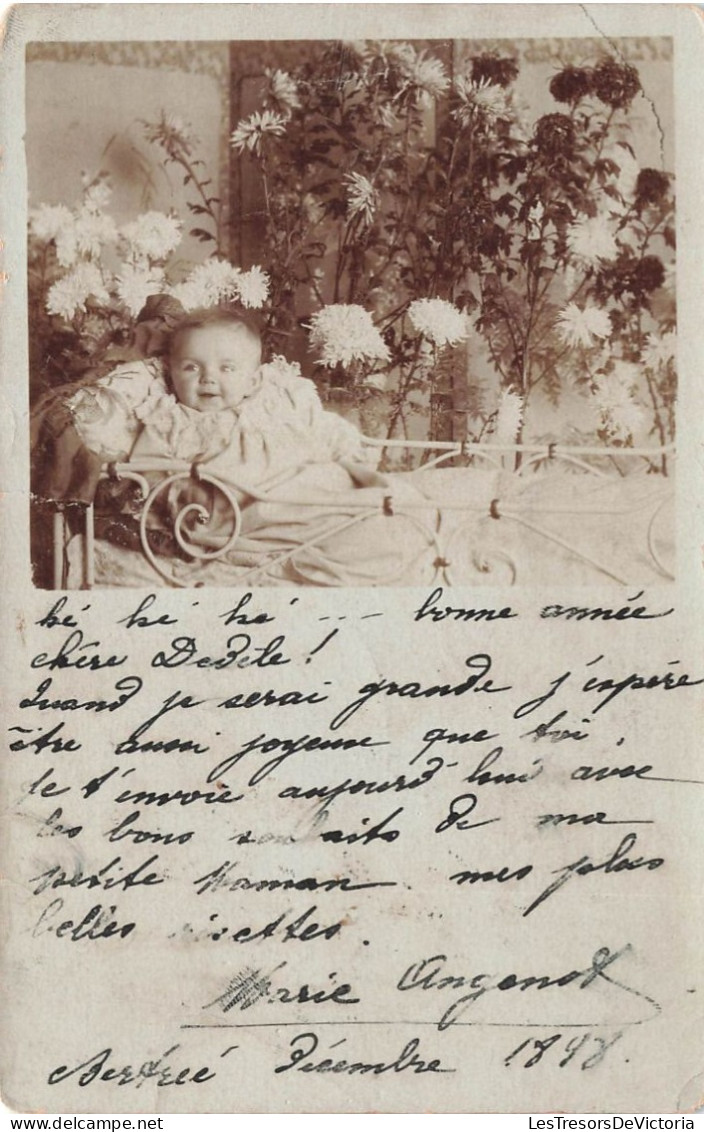 hé hé hé ... bonne année
chère Dédèle !
Quand je serai grande j'espère
être aussi joyeuse que toi.
Je t'envoie aujourd'hui avec
les bons souhaits de ma
petite Maman mes plus
belles risettes.
Marie Angenot
Bertrée Décembre 1898.
LesTresorsDeVictoria.com